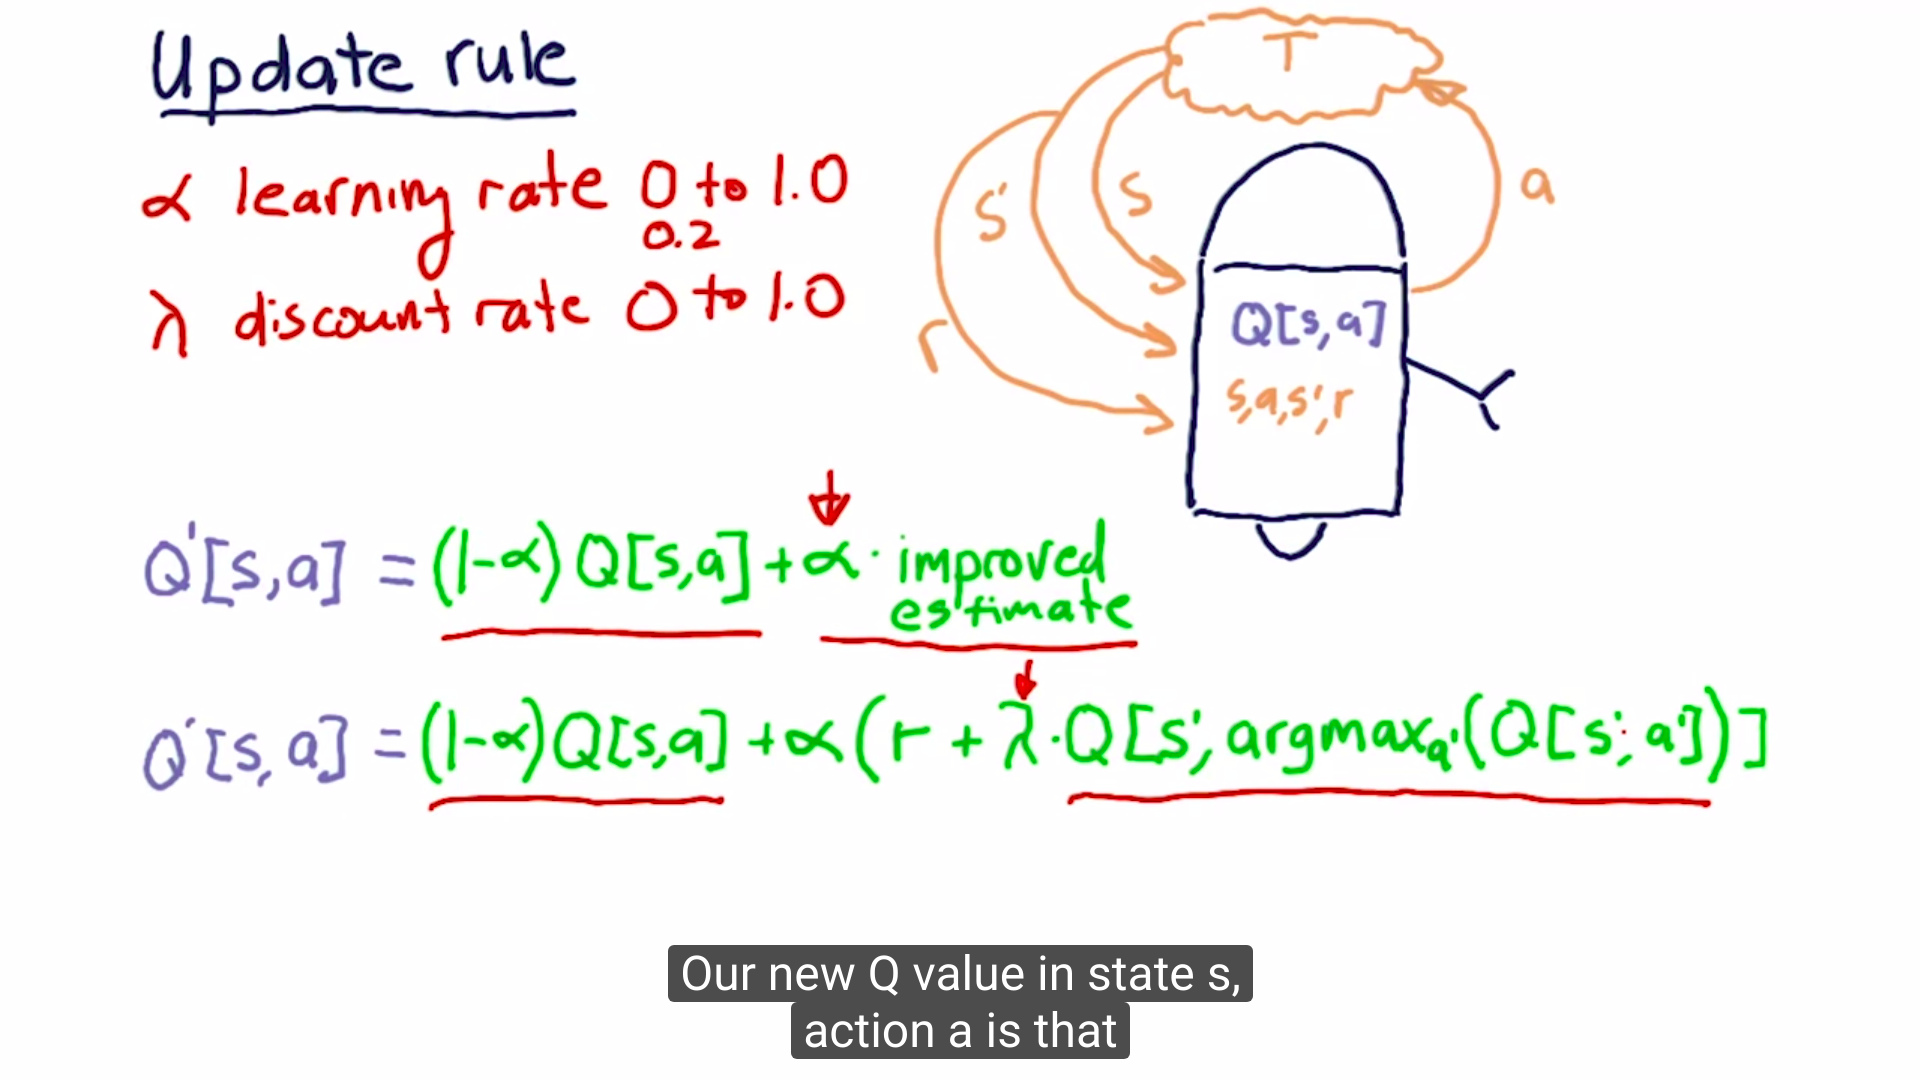 Update rule
α learning rate 0 to 1.0
0.2
λ discount rate 0 to 1.0
T
s'
s
a
r
Q[s,a]
s,a,s',r
Q'[s,a] = (1-α) Q[s,a] + α · improved
estimate
Q'[s,a] = (1-α) Q[s,a] + α (r + λ · Q[s', argmaxₐ'(Q[s',a'])]
Our new Q value in state s,
action a is that